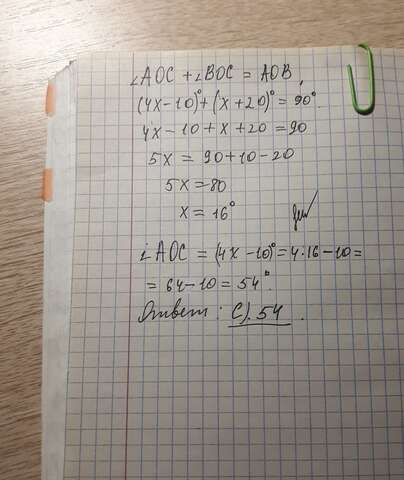 ∠AOC + ∠BOC = AOB,
(4x-10)° + (x+20)° = 90°.
4x-10+x+20=90
5x = 90+10-20
5x = 80
x = 16°
∠AOC = (4x-10)° = 4·16-10=
= 64-10 = 54°.
Ответ: C). 54.